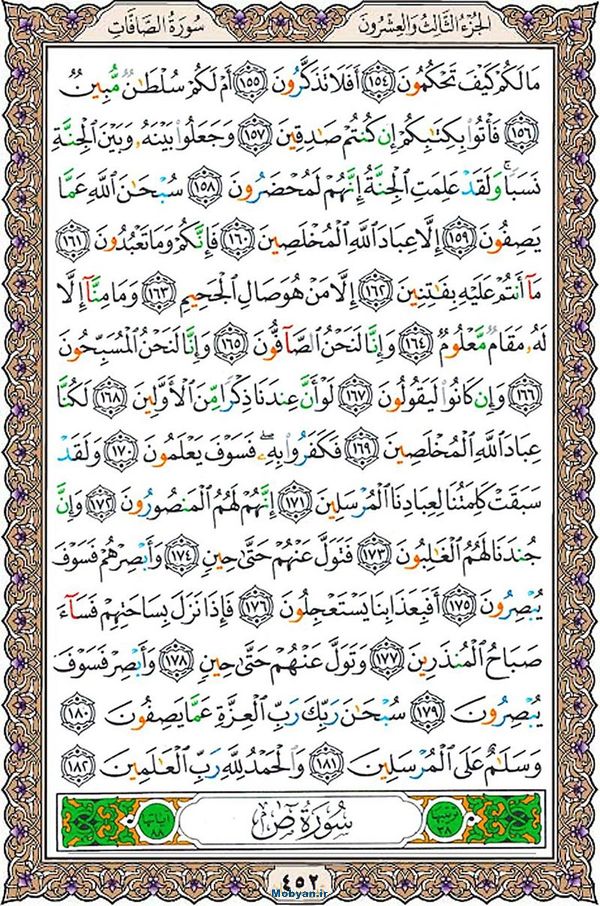 سُورَةُ الصَّافَّات
الجُزءُ الثَّالِثُ وَالعِشرُونَ
مَا لَكُمْ كَيْفَ تَحْكُمُونَ ١٥٤ أَفَلَا تَذَكَّرُونَ ١٥٥ أَمْ لَكُمْ سُلْطَانٌ مُّبِينٌ
١٥٦ فَأْتُوا بِكِتَابِكُمْ إِن كُنتُمْ صَادِقِينَ ١٥٧ وَجَعَلُوا بَيْنَهُ وَبَيْنَ الْجِنَّةِ
نَسَبًا ۚ وَلَقَدْ عَلِمَتِ الْجِنَّةُ إِنَّهُمْ لَمُحْضَرُونَ ١٥٨ سُبْحَانَ اللَّهِ عَمَّا
يَصِفُونَ ١٥٩ إِلَّا عِبَادَ اللَّهِ الْمُخْلَصِينَ ١٦٠ فَإِنَّكُمْ وَمَا تَعْبُدُونَ ١٦١
مَا أَنتُمْ عَلَيْهِ بِفَاتِنِينَ ١٦٢ إِلَّا مَنْ هُوَ صَالِ الْجَحِيمِ ١٦٣ وَمَا مِنَّا إِلَّا
لَهُ مَقَامٌ مَّعْلُومٌ ١٦٤ وَإِنَّا لَنَحْنُ الصَّافُّونَ ١٦٥ وَإِنَّا لَنَحْنُ الْمُسَبِّحُونَ
١٦٦ وَإِن كَانُوا لَيَقُولُونَ ١٦٧ لَوْ أَنَّ عِندَنَا ذِكْرًا مِّنَ الْأَوَّلِينَ ١٦٨ لَكُنَّا
عِبَادَ اللَّهِ الْمُخْلَصِينَ ١٦٩ فَكَفَرُوا بِهِ ۖ فَسَوْفَ يَعْلَمُونَ ١٧٠ وَلَقَدْ
سَبَقَتْ كَلِمَتُنَا لِعِبَادِنَا الْمُرْسَلِينَ ١٧١ إِنَّهُمْ لَهُمُ الْمَنصُورُونَ ١٧٢ وَإِنَّ
جُندَنَا لَهُمُ الْغَالِبُونَ ١٧٣ فَتَوَلَّ عَنْهُمْ حَتَّىٰ حِينٍ ١٧٤ وَأَبْصِرْهُمْ فَسَوْفَ
يُبْصِرُونَ ١٧٥ أَفَبِعَذَابِنَا يَسْتَعْجِلُونَ ١٧٦ فَإِذَا نَزَلَ بِسَاحَتِهِمْ فَسَاءَ
صَبَاحُ الْمُنذَرِينَ ١٧٧ وَتَوَلَّ عَنْهُمْ حَتَّىٰ حِينٍ ١٧٨ وَأَبْصِرْ فَسَوْفَ
يُبْصِرُونَ ١٧٩ سُبْحَانَ رَبِّكَ رَبِّ الْعِزَّةِ عَمَّا يَصِفُونَ ١٨٠
وَسَلَامٌ عَلَى الْمُرْسَلِينَ ١٨١ وَالْحَمْدُ لِلَّهِ رَبِّ الْعَالَمِينَ ١٨٢
ترتيبها ٣٨
سُورَةُ صٓ
آياتها ٨٨
٤٥٢
Mobyan.ir